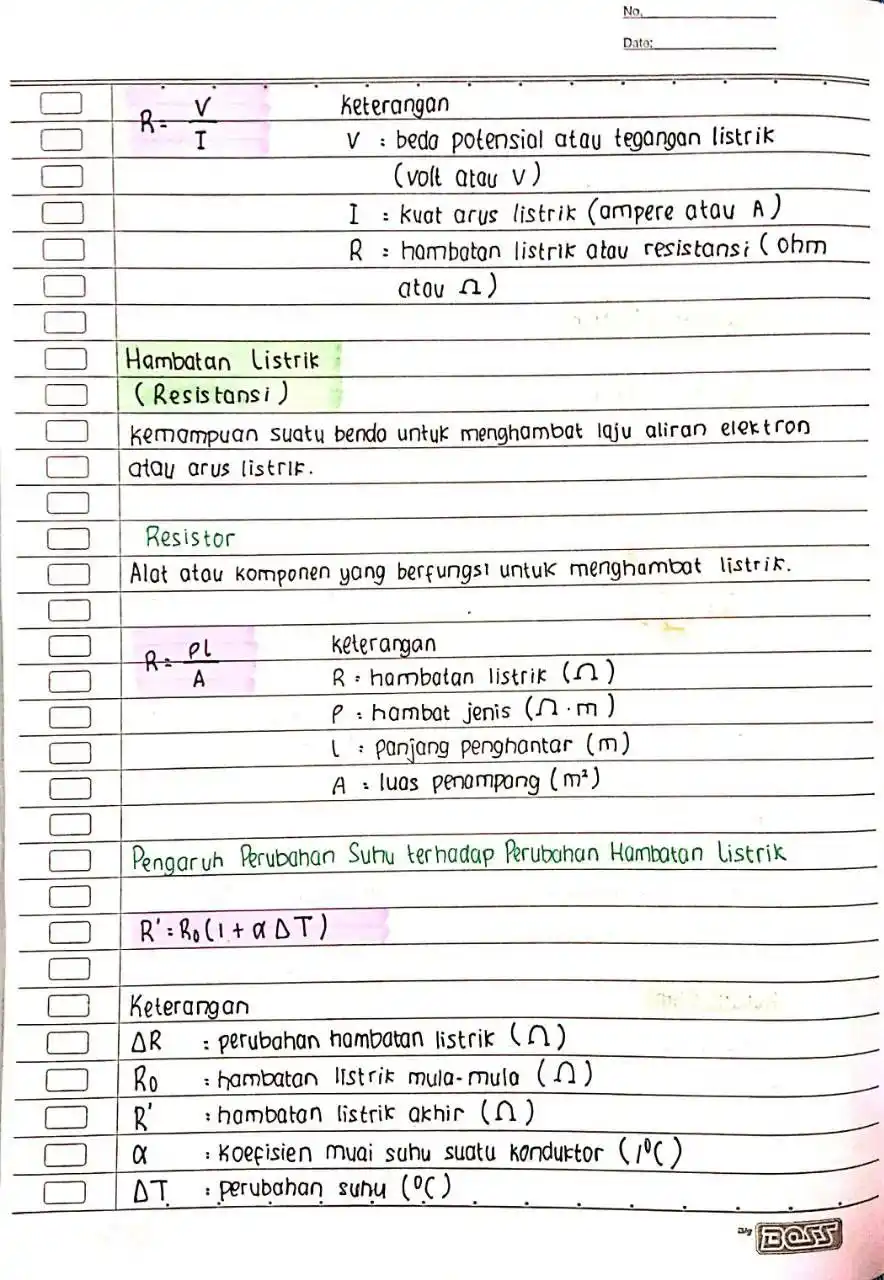 No.
Date:
R = V/I
Keterangan
V : beda potensial atau tegangan listrik
(volt atau V)
I : kuat arus listrik (ampere atau A)
R : hambatan listrik atau resistansi (ohm
atau Ω)
Hambatan Listrik
(Resistansi)
Kemampuan suatu benda untuk menghambat laju aliran elektron
atau arus listrik.
Resistor
Alat atau komponen yang berfungsi untuk menghambat listrik.
R = ρl/A
Keterangan
R : hambatan listrik (Ω)
ρ : hambat jenis (Ω·m)
l : panjang penghantar (m)
A : luas penampang (m²)
Pengaruh Perubahan Suhu terhadap Perubahan Hambatan Listrik
R' = R₀(1 + α ΔT)
Keterangan
ΔR : perubahan hambatan listrik (Ω)
R₀ : hambatan listrik mula-mula (Ω)
R' : hambatan listrik akhir (Ω)
α : Koefisien muai suhu suatu konduktor (/°C)
ΔT : perubahan suhu (°C)
BOSS